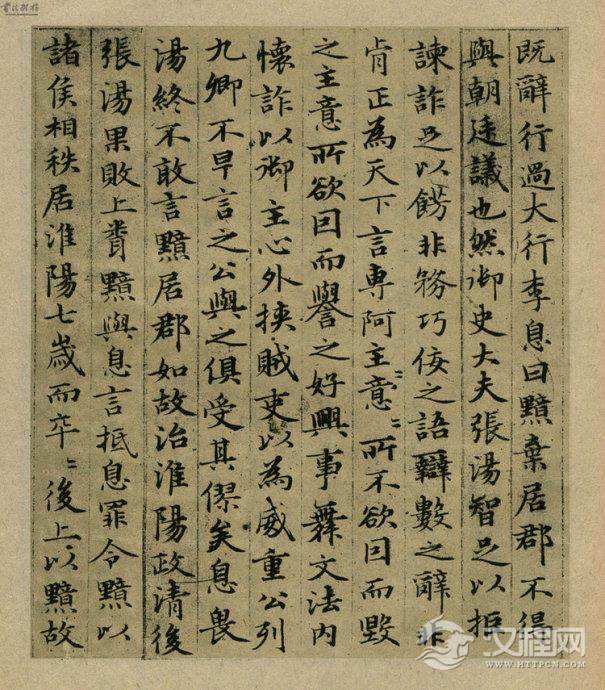 既辭行過大行李息曰黯棄居郡不得
與朝廷議也然御史大夫張湯智足以拒
諫詐足以餝非務巧佞之語辯數之辭非
肯正為天下言專阿主意〻所不欲因而毀
之主意所欲因而譽之好興事舞文法内
懷詐以御主心外挾賊吏以為威重公列
九卿不早言之公與之俱受其僇矣息畏
湯終不敢言黯居郡如故治淮陽政清後
張湯果敗上聞黯與息言抵息罪令黯以
諸侯相秩居淮陽七歲而卒〻後上以黯故
汉程网
WWW.HTTPCN.COM